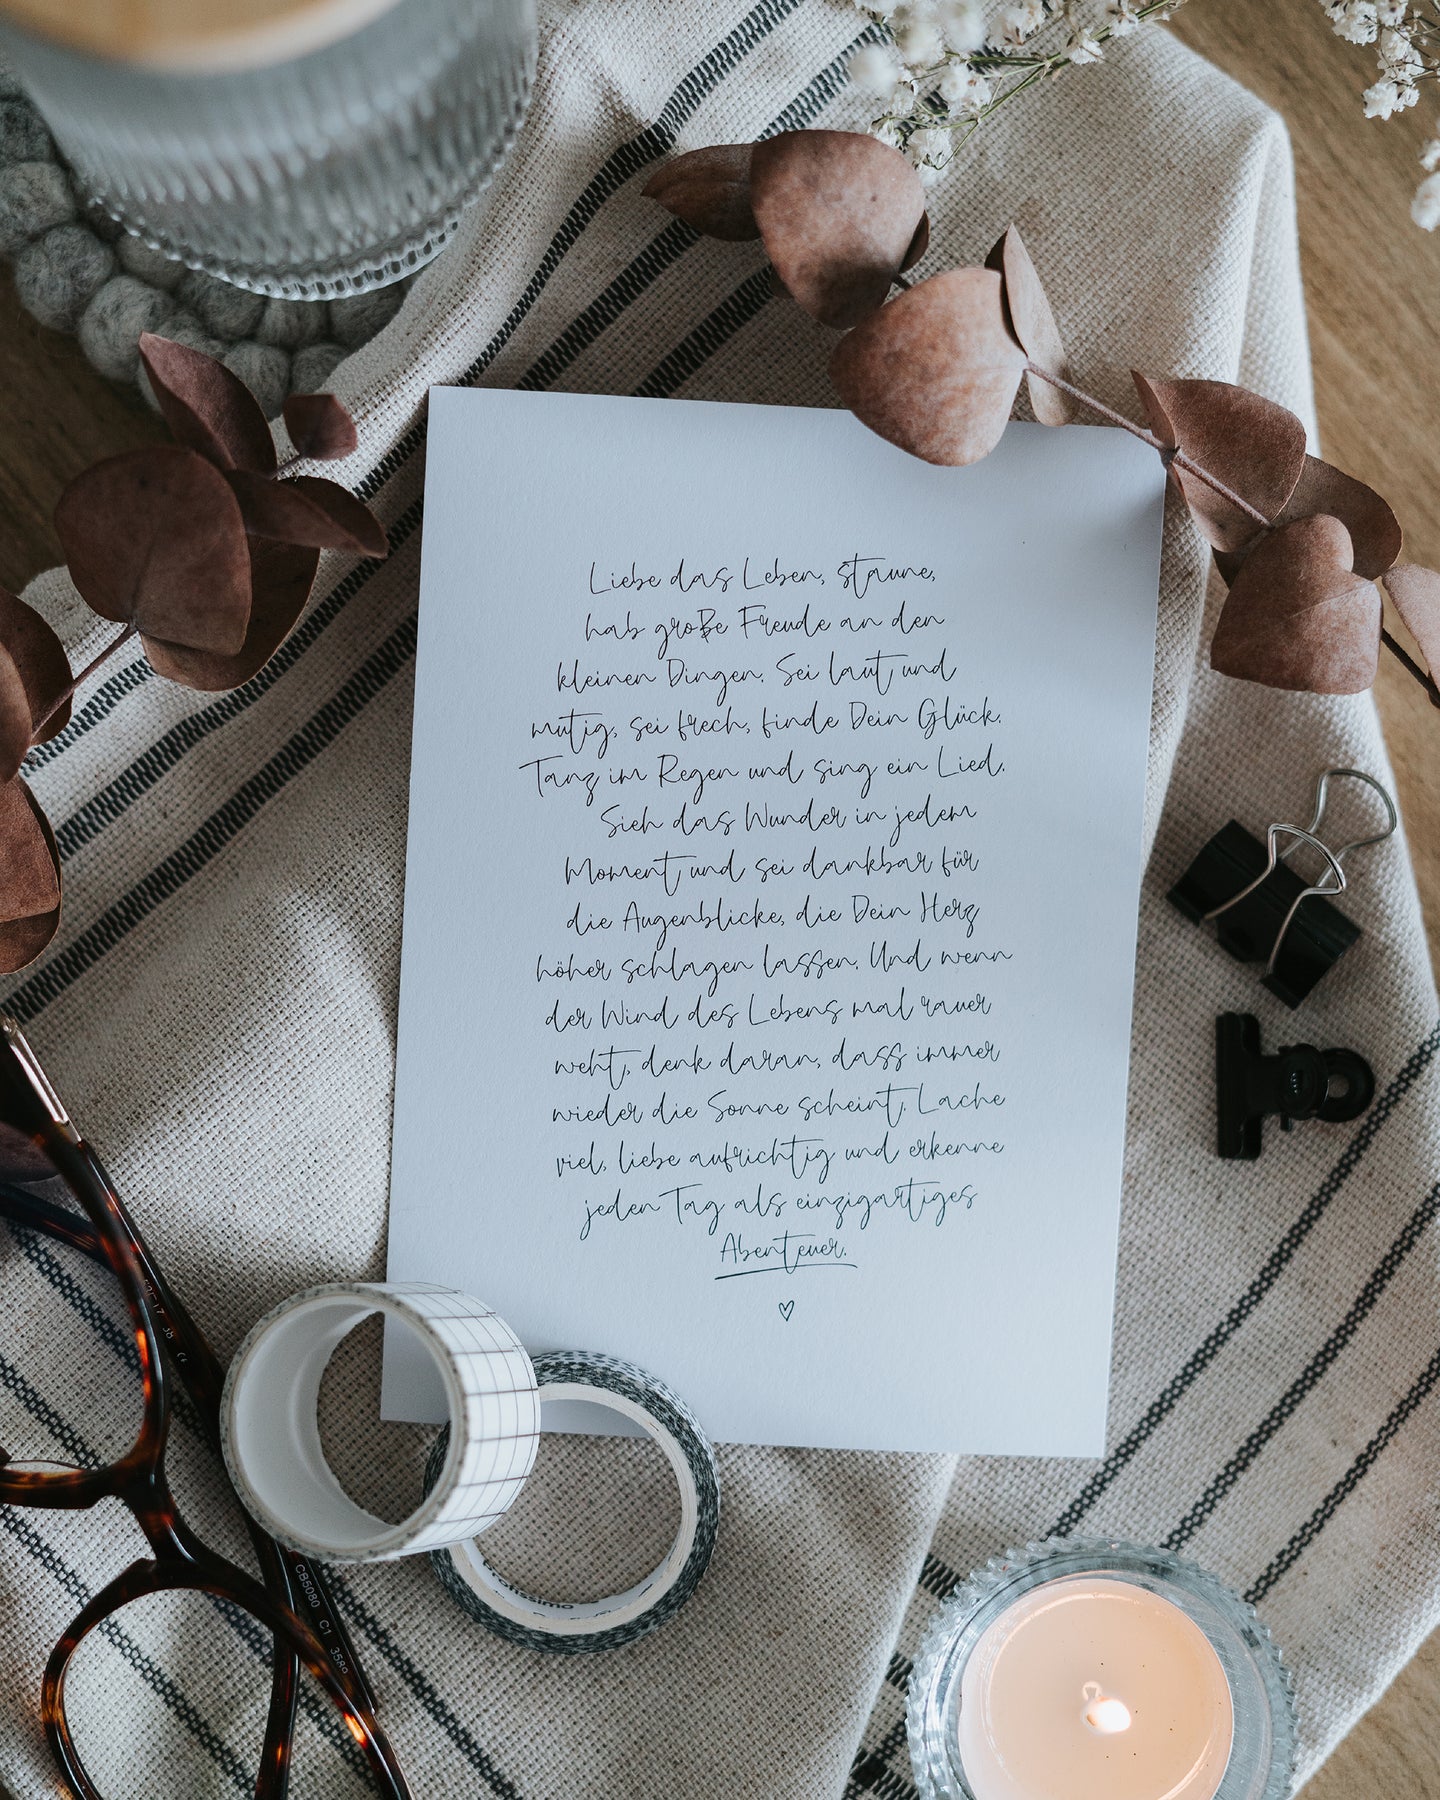 Liebe das Leben, staune,
hab große Freude an den
kleinen Dingen. Sei laut und
mutig, sei frech, finde Dein Glück.
Tanz im Regen und sing ein Lied.
Sieh das Wunder in jedem
Moment und sei dankbar für
die Augenblicke, die Dein Herz
höher schlagen lassen. Und wenn
der Wind des Lebens mal rauer
weht, denk daran, dass immer
wieder die Sonne scheint. Lache
viel, liebe aufrichtig und erkenne
jeden Tag als einzigartiges
Abenteuer.
CB5080 C1